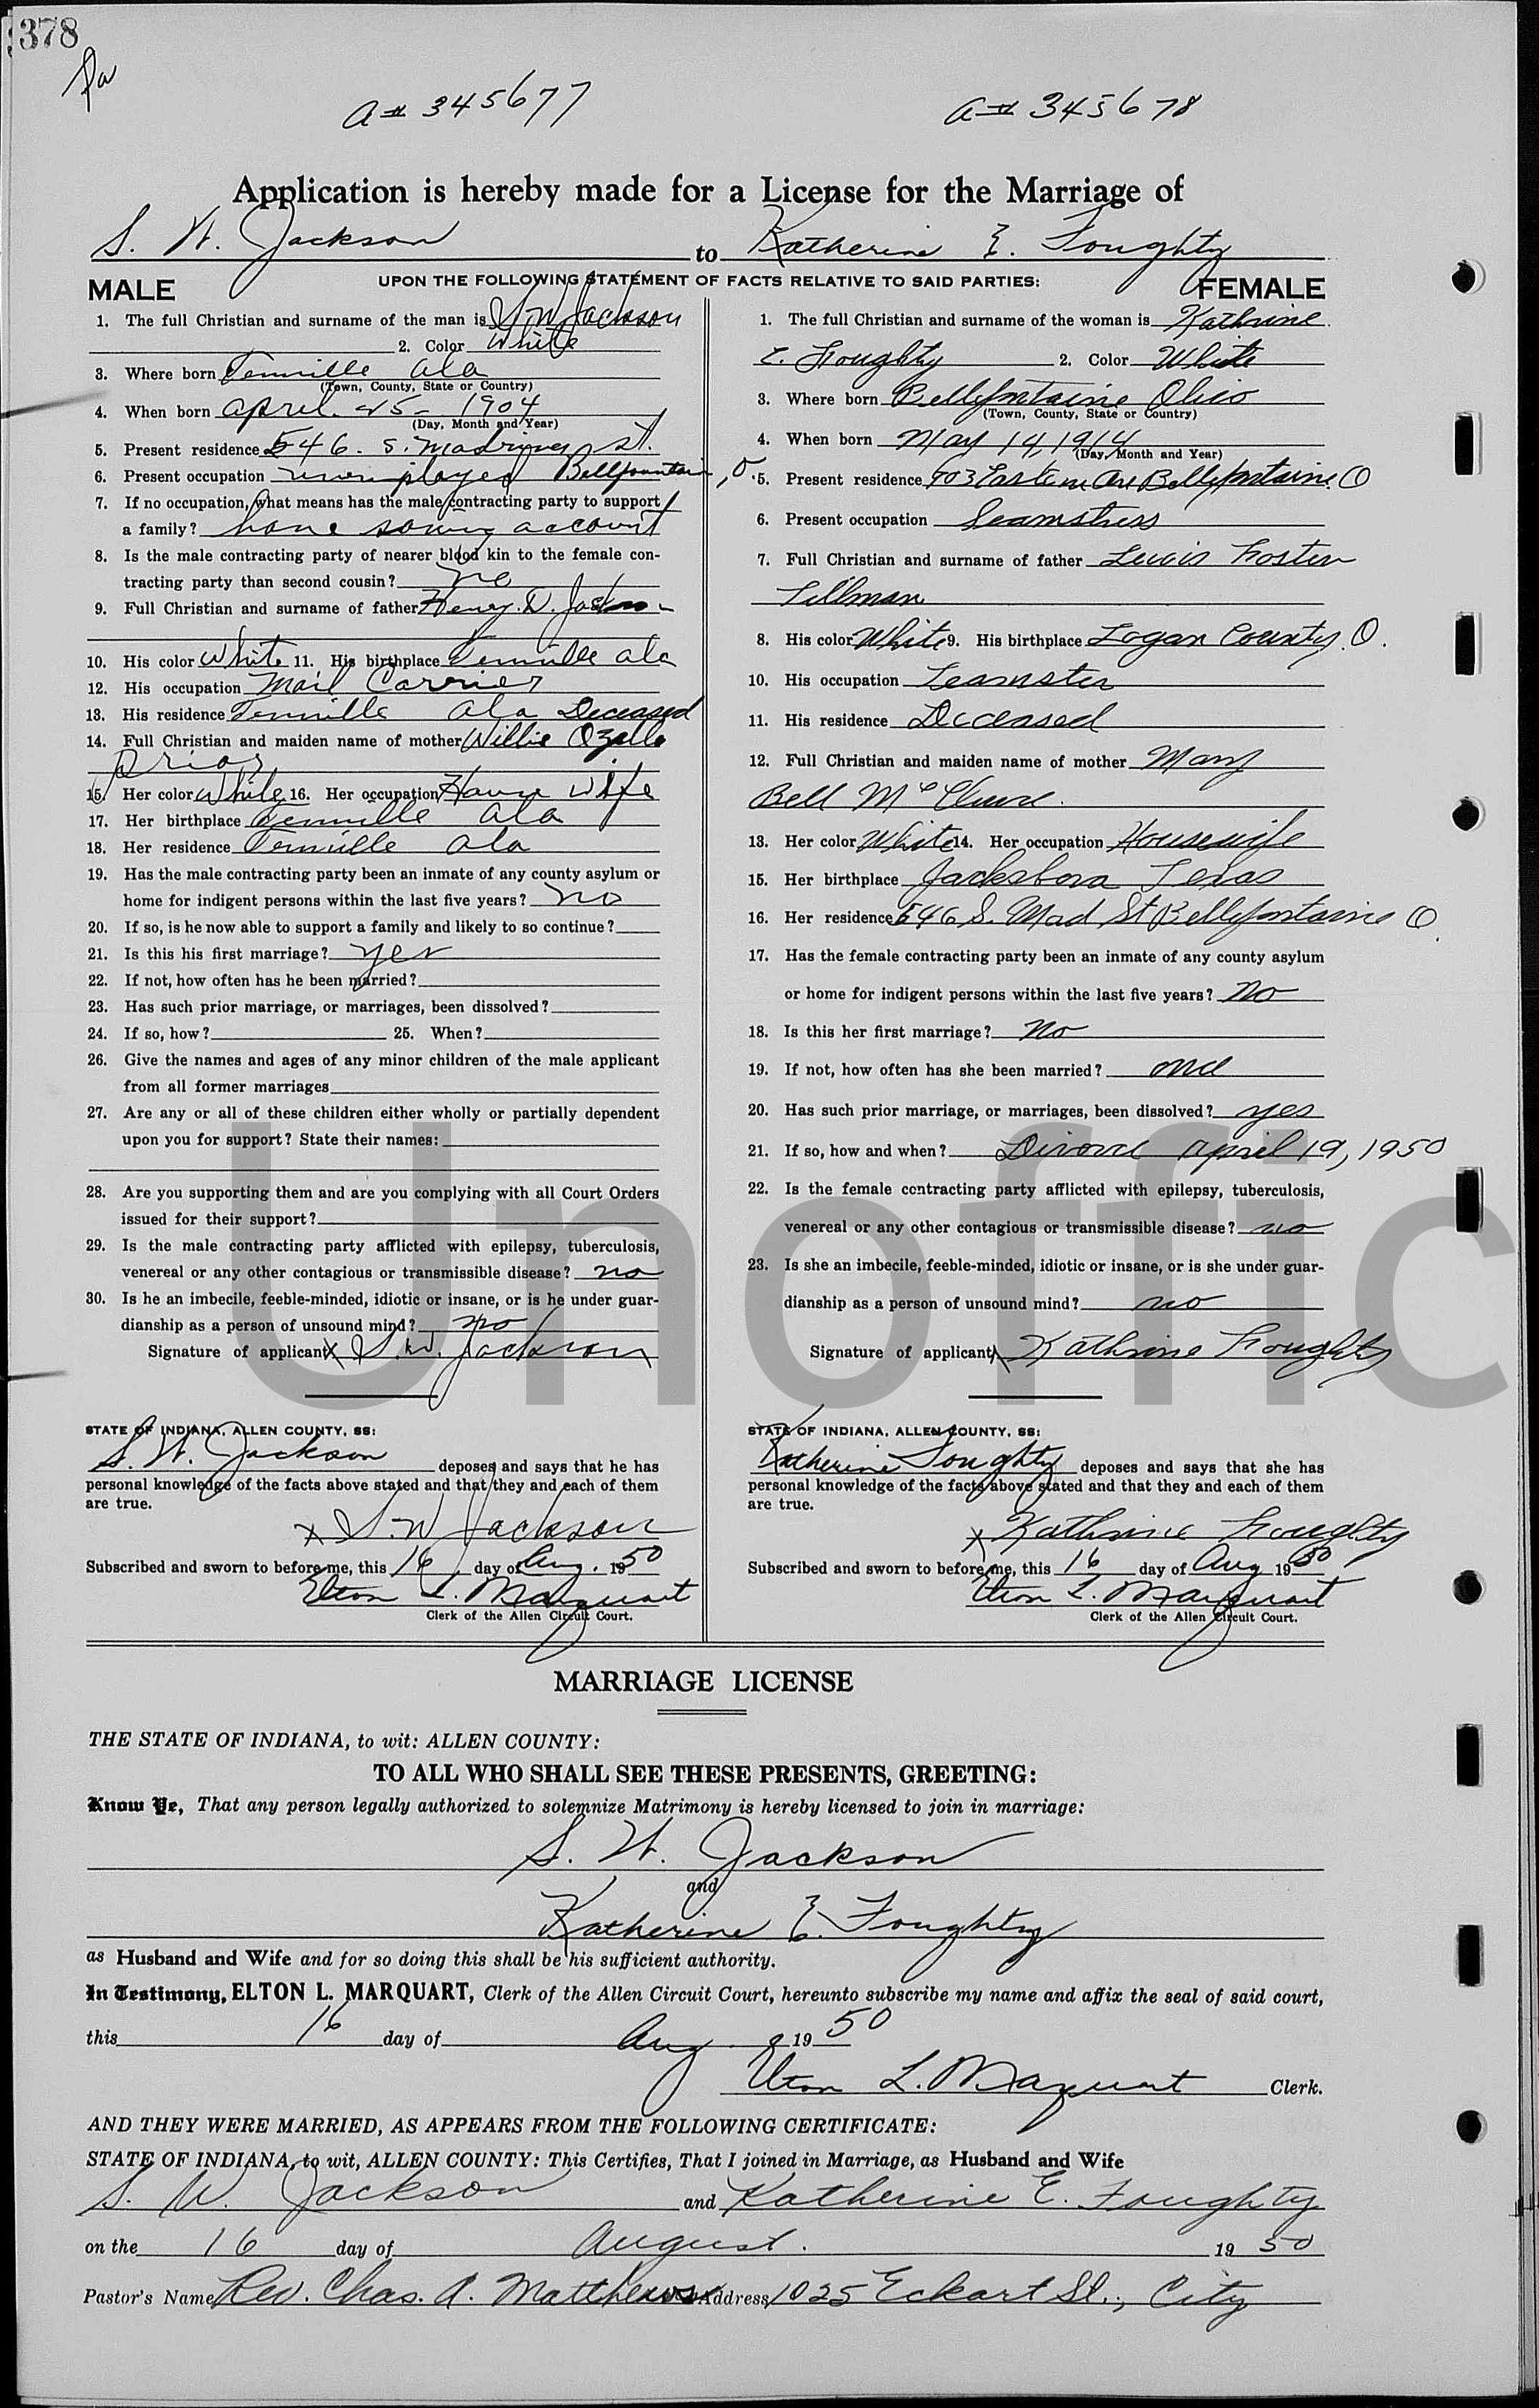 378
A# 345677
A# 345678
Application is hereby made for a License for the Marriage of
S. W. Jackson to Katherine E. Foughty
UPON THE FOLLOWING STATEMENT OF FACTS RELATIVE TO SAID PARTIES:
MALE
1. The full Christian and surname of the man is S W Jackson
2. Color White
3. Where born Tennille Ala
(Town, County, State or Country)
4. When born April 25 - 1904
(Day, Month and Year)
5. Present residence 546. S. Madriver St.
6. Present occupation unemployed Bellfountain, O
7. If no occupation, what means has the male contracting party to support
a family? have account
8. Is the male contracting party of nearer blood kin to the female con-
tracting party than second cousin? no
9. Full Christian and surname of father Henry. D. Jackson
10. His color White 11. His birthplace Tennille Ala
12. His occupation Mail Carrier
13. His residence Tennille Ala Deceased
14. Full Christian and maiden name of mother Willie Ozella
Prior
15. Her color White 16. Her occupation House Wife
17. Her birthplace Tennille Ala
18. Her residence Tennille Ala
19. Has the male contracting party been an inmate of any county asylum or
home for indigent persons within the last five years? no
20. If so, is he now able to support a family and likely to so continue?
21. Is this his first marriage? yes
22. If not, how often has he been married?
23. Has such prior marriage, or marriages, been dissolved?
24. If so, how? 25. When?
26. Give the names and ages of any minor children of the male applicant
from all former marriages
27. Are any or all of these children either wholly or partially dependent
upon you for support? State their names:
28. Are you supporting them and are you complying with all Court Orders
issued for their support?
29. Is the male contracting party afflicted with epilepsy, tuberculosis,
venereal or any other contagious or transmissible disease? no
30. Is he an imbecile, feeble-minded, idiotic or insane, or is he under guar-
dianship as a person of unsound mind? no
Signature of applicant X S. W. Jackson
STATE OF INDIANA, ALLEN COUNTY, SS:
S. W. Jackson deposes and says that he has
personal knowledge of the facts above stated and that they and each of them
are true.
X S. W Jackson
Subscribed and sworn to before me, this 16 day of Aug. 1950
Elton L. Marquart
Clerk of the Allen Circuit Court.
FEMALE
1. The full Christian and surname of the woman is Kathrine
E. Foughty 2. Color White
3. Where born Bellefontaine Ohio
(Town, County, State or Country)
4. When born May 14, 1914
(Day, Month and Year)
5. Present residence 903 Eastern Ave Bellefontaine O
6. Present occupation Seamstress
7. Full Christian and surname of father Lewis Foster
Tillman
8. His color White 9. His birthplace Logan County, O.
10. His occupation Teamster
11. His residence Deceased
12. Full Christian and maiden name of mother Mary
Bell McClure.
13. Her color White 14. Her occupation Housewife
15. Her birthplace Jacksboro Texas
16. Her residence 546 S. Mad St Bellefontaine O
17. Has the female contracting party been an inmate of any county asylum
or home for indigent persons within the last five years? No
18. Is this her first marriage? No
19. If not, how often has she been married? once
20. Has such prior marriage, or marriages, been dissolved? yes
21. If so, how and when? Divorce April 19, 1950
22. Is the female contracting party afflicted with epilepsy, tuberculosis,
venereal or any other contagious or transmissible disease? no
23. Is she an imbecile, feeble-minded, idiotic or insane, or is she under guar-
dianship as a person of unsound mind? no
Signature of applicant X Kathrine Foughty
STATE OF INDIANA, ALLEN COUNTY, SS:
Katherine Foughty deposes and says that she has
personal knowledge of the facts above stated and that they and each of them
are true.
X Kathrine Foughty
Subscribed and sworn to before me, this 16 day of Aug 1950
Elton L. Marquart
Clerk of the Allen Circuit Court.
Unoffic
MARRIAGE LICENSE
THE STATE OF INDIANA, to wit: ALLEN COUNTY:
TO ALL WHO SHALL SEE THESE PRESENTS, GREETING:
Know Ye, That any person legally authorized to solemnize Matrimony is hereby licensed to join in marriage:
S. W. Jackson
and
Katherine E. Foughty
as Husband and Wife and for so doing this shall be his sufficient authority.
In Testimony, ELTON L. MARQUART, Clerk of the Allen Circuit Court, hereunto subscribe my name and affix the seal of said court,
this 16 day of Aug 19 50
Elton L. Marquart Clerk.
AND THEY WERE MARRIED, AS APPEARS FROM THE FOLLOWING CERTIFICATE:
STATE OF INDIANA, to wit, ALLEN COUNTY: This Certifies, That I joined in Marriage, as Husband and Wife
S. W. Jackson and Katherine E. Foughty
on the 16 day of August. 19 50
Pastor's Name Rev. Chas. A. Matthews Address 1025 Eckart St., City